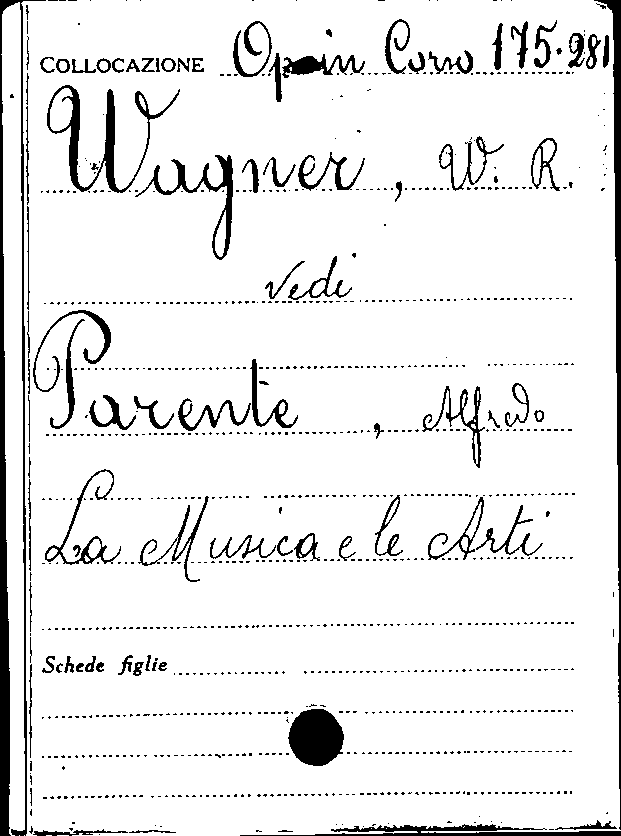 COLLOCAZIONE Op in Corso 175.281
Wagner, W. R.
vedi
Parente, Alfredo
La Musica e le Arti
Schede figlie